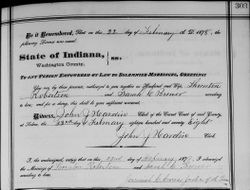 303
Be it Remembered, That on this 22 day of February A. D. 1878, the
following License was issued:
State of Indiana,
Washington County. } ss:
To any Person Empowered by Law to Solemnize Marriages, Greeting:
You are, by these presents, authorized to join together as Husband and Wife, Thornton
Robertson and Sarah C.
according to law, and for so doing, this shall be your sufficient warrant.
Witness, John J Hardin Clerk of the Circuit Court of said County,
at Salem, this 22nd day of February eighteen hundred and seventy Eight
John J Hardin Clerk
I, the undersigned, certify that on 22nd of February 1878, I solemnized
the Marriage of Thornton Robertson and Sarah C.
Samuel